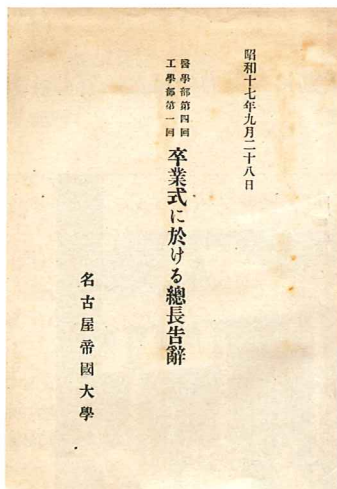 昭和十七年九月二十八日
醫學部第四回
工學部第一回
卒業式に於ける總長告辭
名古屋帝國大學